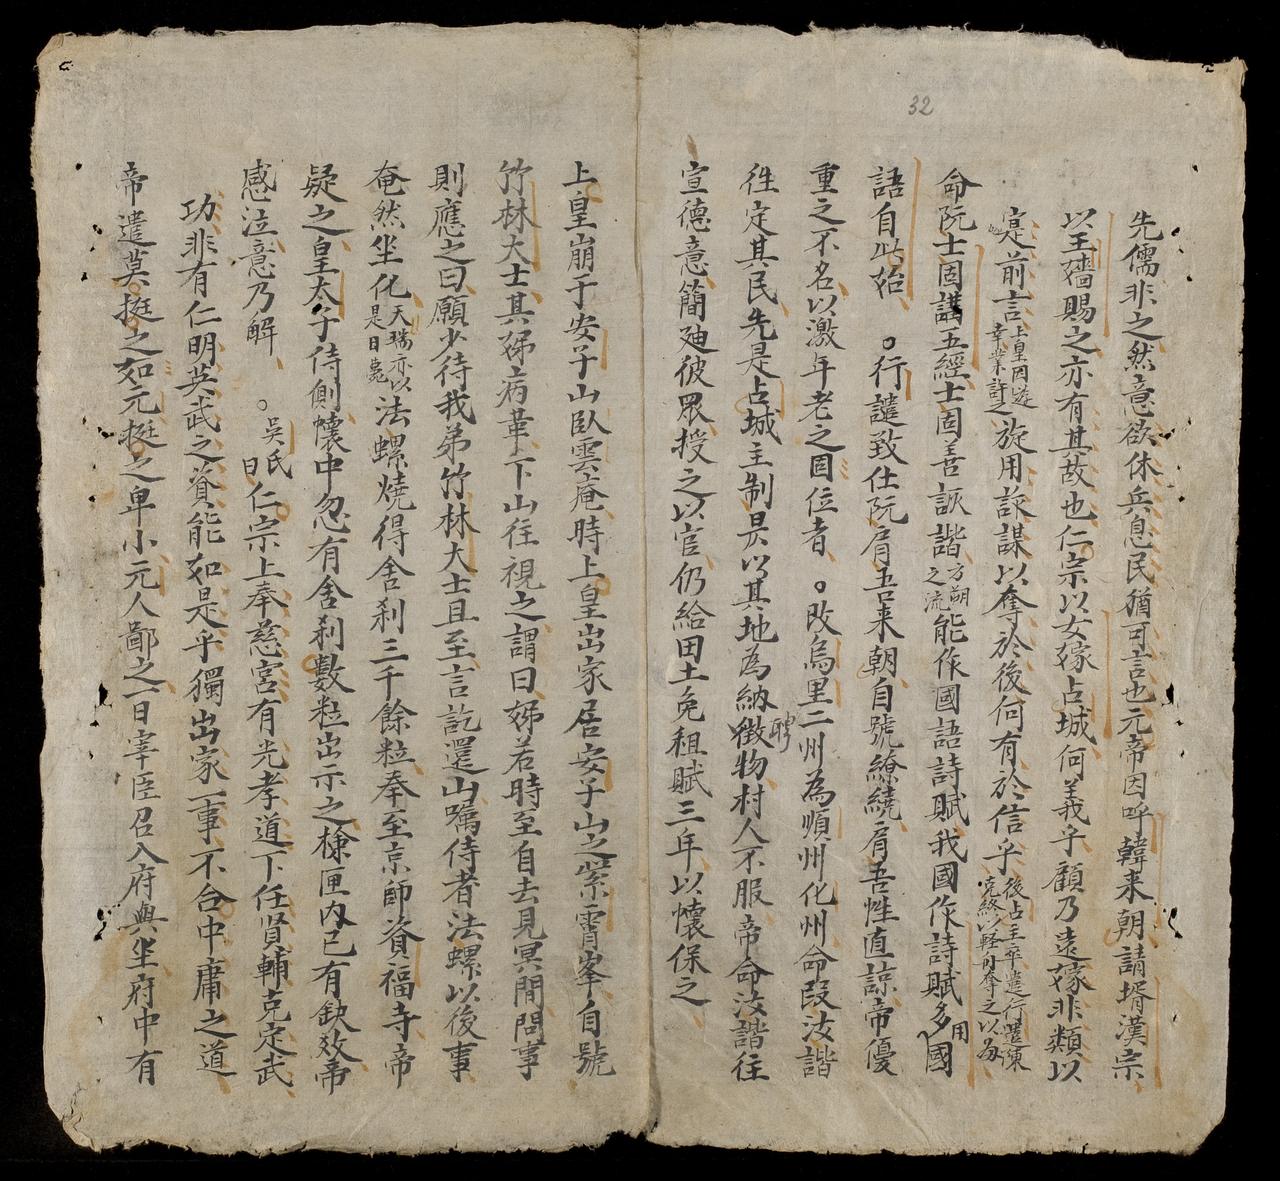 32
先儒非之然意欲休兵息民猶可言也元帝因呼韓来朝請壻漢宗
以王嬙賜之亦有其故也仁宗以女嫁占城何義乎顧乃遠嫁非類以
寔前言上皇因遊幸業許之旋用詠謀以奪於後何有於信乎後占主卒遣行遣陳克終以軽舟奪之以歸
命阮士固講五經士固善詼諧方朔之流能作國語詩賦我國作詩賦多用國
語自此始。行譴致仕阮肩吾来朝自號繚繞肩吾性直諒帝優
重之不名以激年老之固位者。改烏里二州為順州化州命段汝諧
徃定其民先是占城主制旻以其地為納徴聘物村人不服帝命汝諧往
宣德意簡廸彼眾授之以官仍給田土免租賦三年以懷保之
上皇崩于安子山臥雲庵時上皇出家居安子山之紫霄峯自號
竹林大士其姊病革下山往視之謂曰姊若時至自去見冥間問事
則應之曰願少待我弟竹林大士且至言訖還山囑侍者法螺以後事
奄然坐化天瑞亦以是日薨法螺燒得舍利三千餘粒奉至京師資福寺帝
疑之皇太子侍側懷中忽有舍利數粒出示之檢匣內已有缺数帝
感泣意乃解。吳氏曰仁宗上奉慈宮有光孝道下任賢輔克定武
功非有仁明英武之資能如是乎獨出家一事不合中庸之道
帝遣莫挺之如元挺之卑小元人鄙之一日宰臣召入府與坐府中有